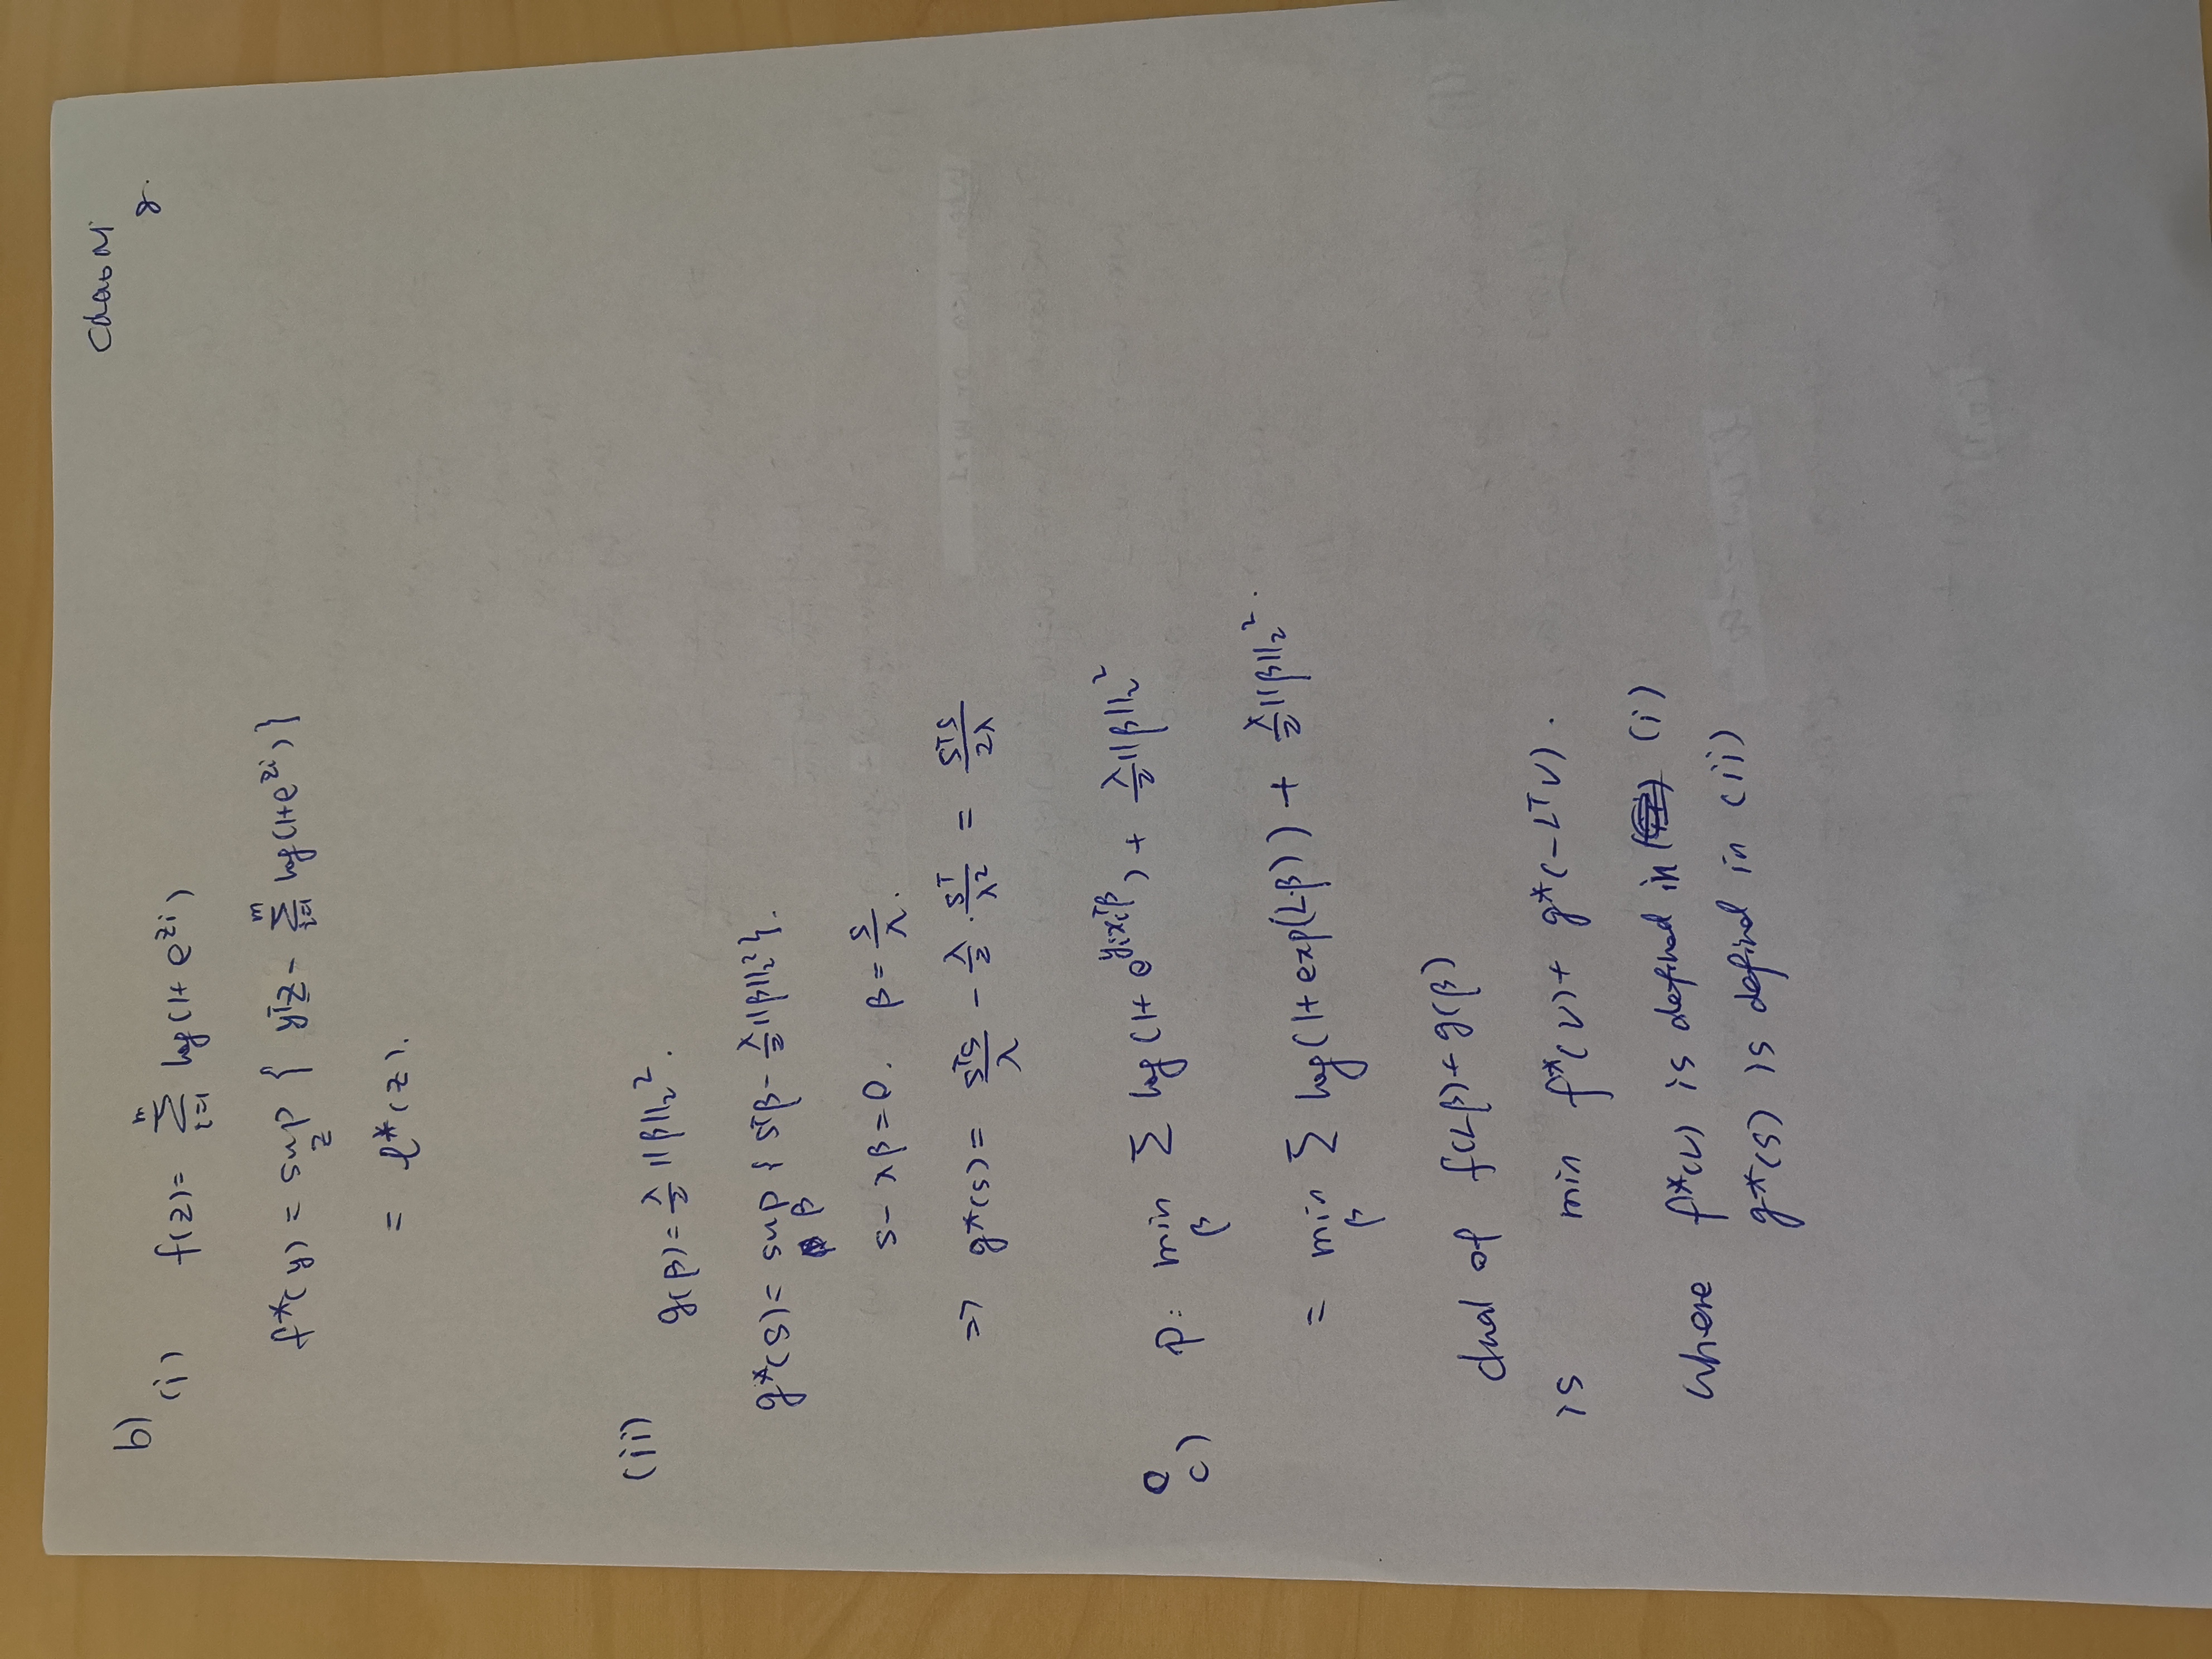 Chao Ni
8.
b)
(i) f(z) = \sum_{i=1}^{m} log(1+e^{z_i})
f*(y) = sup_z { y^T z - \sum_{i=1}^{m} log(1+e^{z_i}) }
= l*(z).
(ii) g(β) = λ/2 ||β||_2^2.
g*(s) = sup_β { s^T β - λ/2 ||β||_2^2 }.
s - λβ = 0. β = s/λ.
=> g*(s) = s^T s/λ - λ/2 · s^T/λ^2 = s^T s/2λ
c) P: min_β \sum log(1+e^{y_i x_i^T β}) + λ/2 ||β||_2^2
= min_β \sum log(1+exp(Lβ)) + λ/2 ||β||_2^2.
dual of f(Lβ)+g(β)
is min f*(v) + g*(-L^T v).
where f*(v) is defined in (i)
g*(s) is defind in (ii)